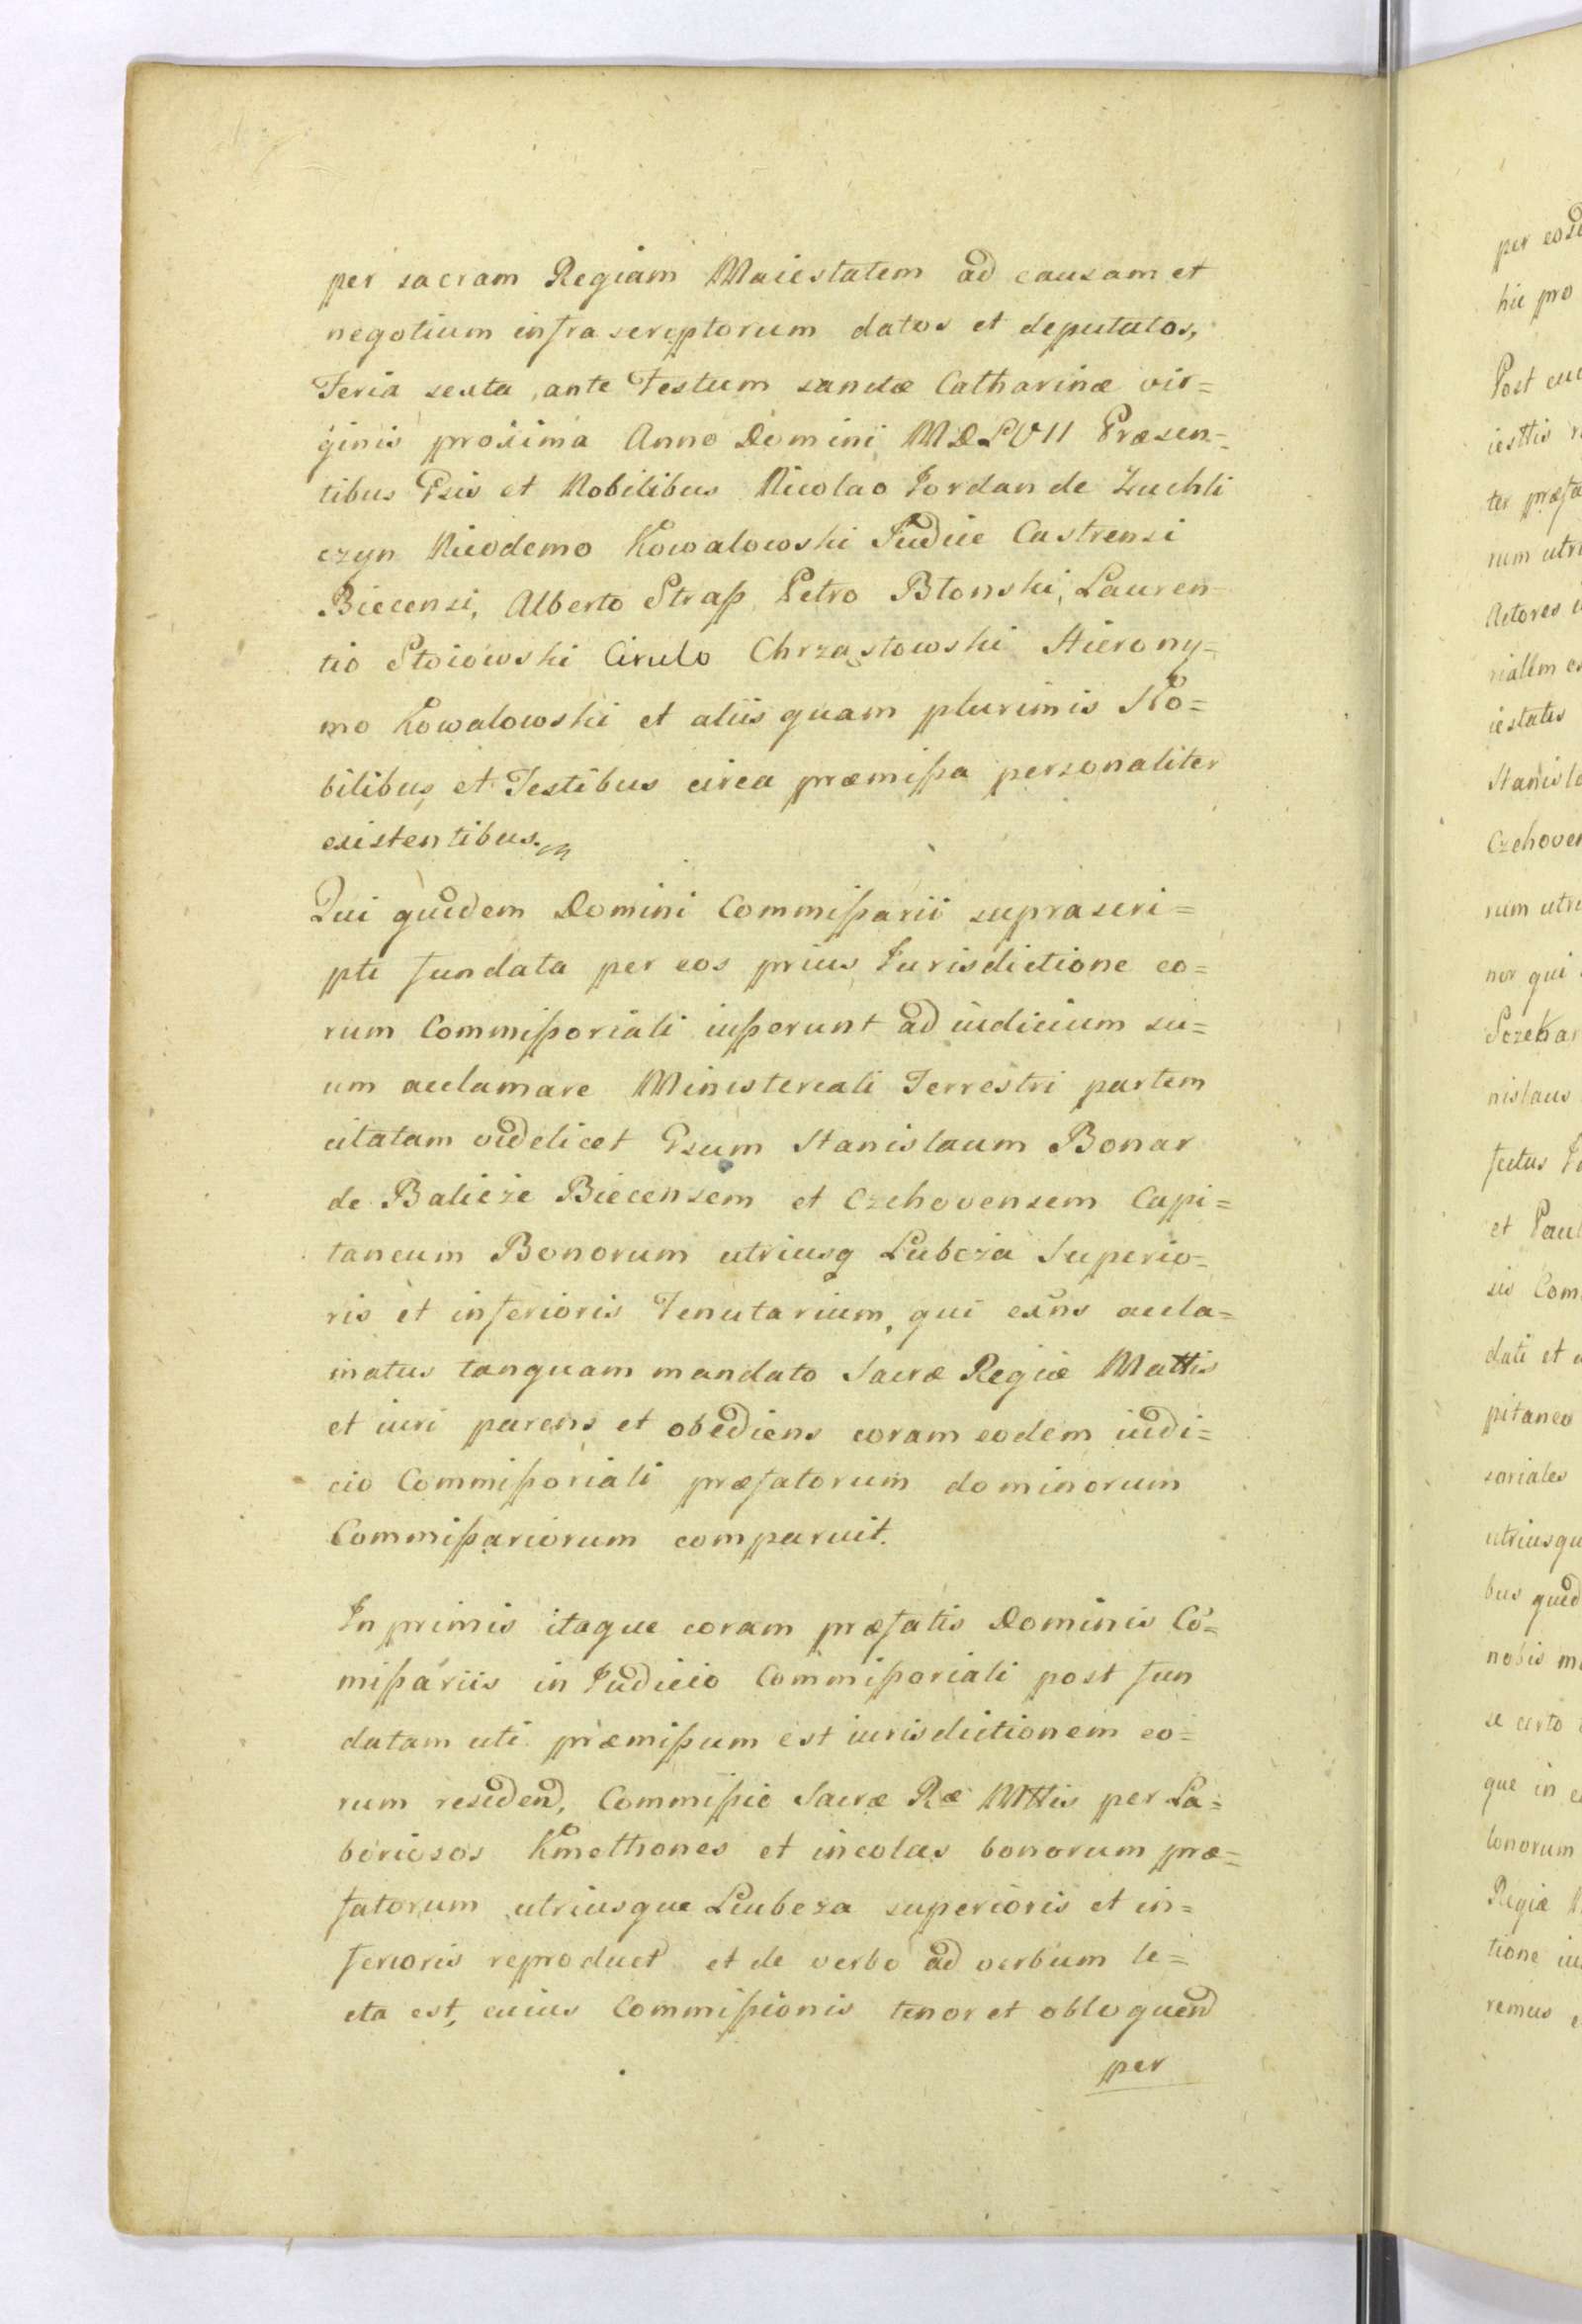 per sacram Regiam Maiestatem ad causam et
negotium infrascriptorum datos et deputatos,
Feria sexta ante Festum sanctæ Catharinæ vir=
ginis proxima Anno Domini MDLVII Præsen=
tibus Gsis et Nobilibus Nicolao Jordan de Zachli
czyn Nicodemo Kowalowski Judice Castrensi
Biecensi, Alberto Straß Petro Błonski, Lauren=
tio Stoiowski Cirulo Chrząstowski Hierony=
mo Kowalowski et aliis quam plurimis No=
bilibus et Testibus circa præmißa personaliter
existentibus.
Qui quidem Domini Commißarii suprascri=
pti fundata per eos prius Jurisdictione eo=
rum Commißoriali iußerunt ad iudicium su=
um acclamare Ministeriali Terrestri partem
citatam videlicet Gsum Stanislaum Bonar
de Balicze Biecensem et Czchovensem Capi=
taneum Bonorum utriusq Lubcza Superio=
ris et inferioris Tenutarium, qui exñs accla=
matus tanquam mandato Sacræ Regiæ Mattis
et iuri parens et obediens coram eodem iudi=
cio Commißoriali præfatorum dominorum
Commißariorum comparuit.
In primis itaque coram præfatis Dominis Cõ=
mißariis in Judicio Commißoriali post fun
datam uti præmißum est iurisdictionem eo=
rum residend, Commißio Sacræ Ræ Mttis per La=
boriosos Kmethones et incolas bonorum præ=
fatorum utriusque Liubcza superioris et in=
ferioris reproduct et de verbo ad verbum le=
cta est, cuius Commißionis tenor et obloquend
per
per eosd
hic pro
Post
iesttis
ter præfa
rum utri
Actores
riallm
iestatis
Stanisla
Czchoven
rum utri
nor qui
nislaus
et Paul
sis Com
dati et
pitaneo
soriales
utriusqu
bus quid
nobis
que in
bonorum
Regiæ
tione
remus